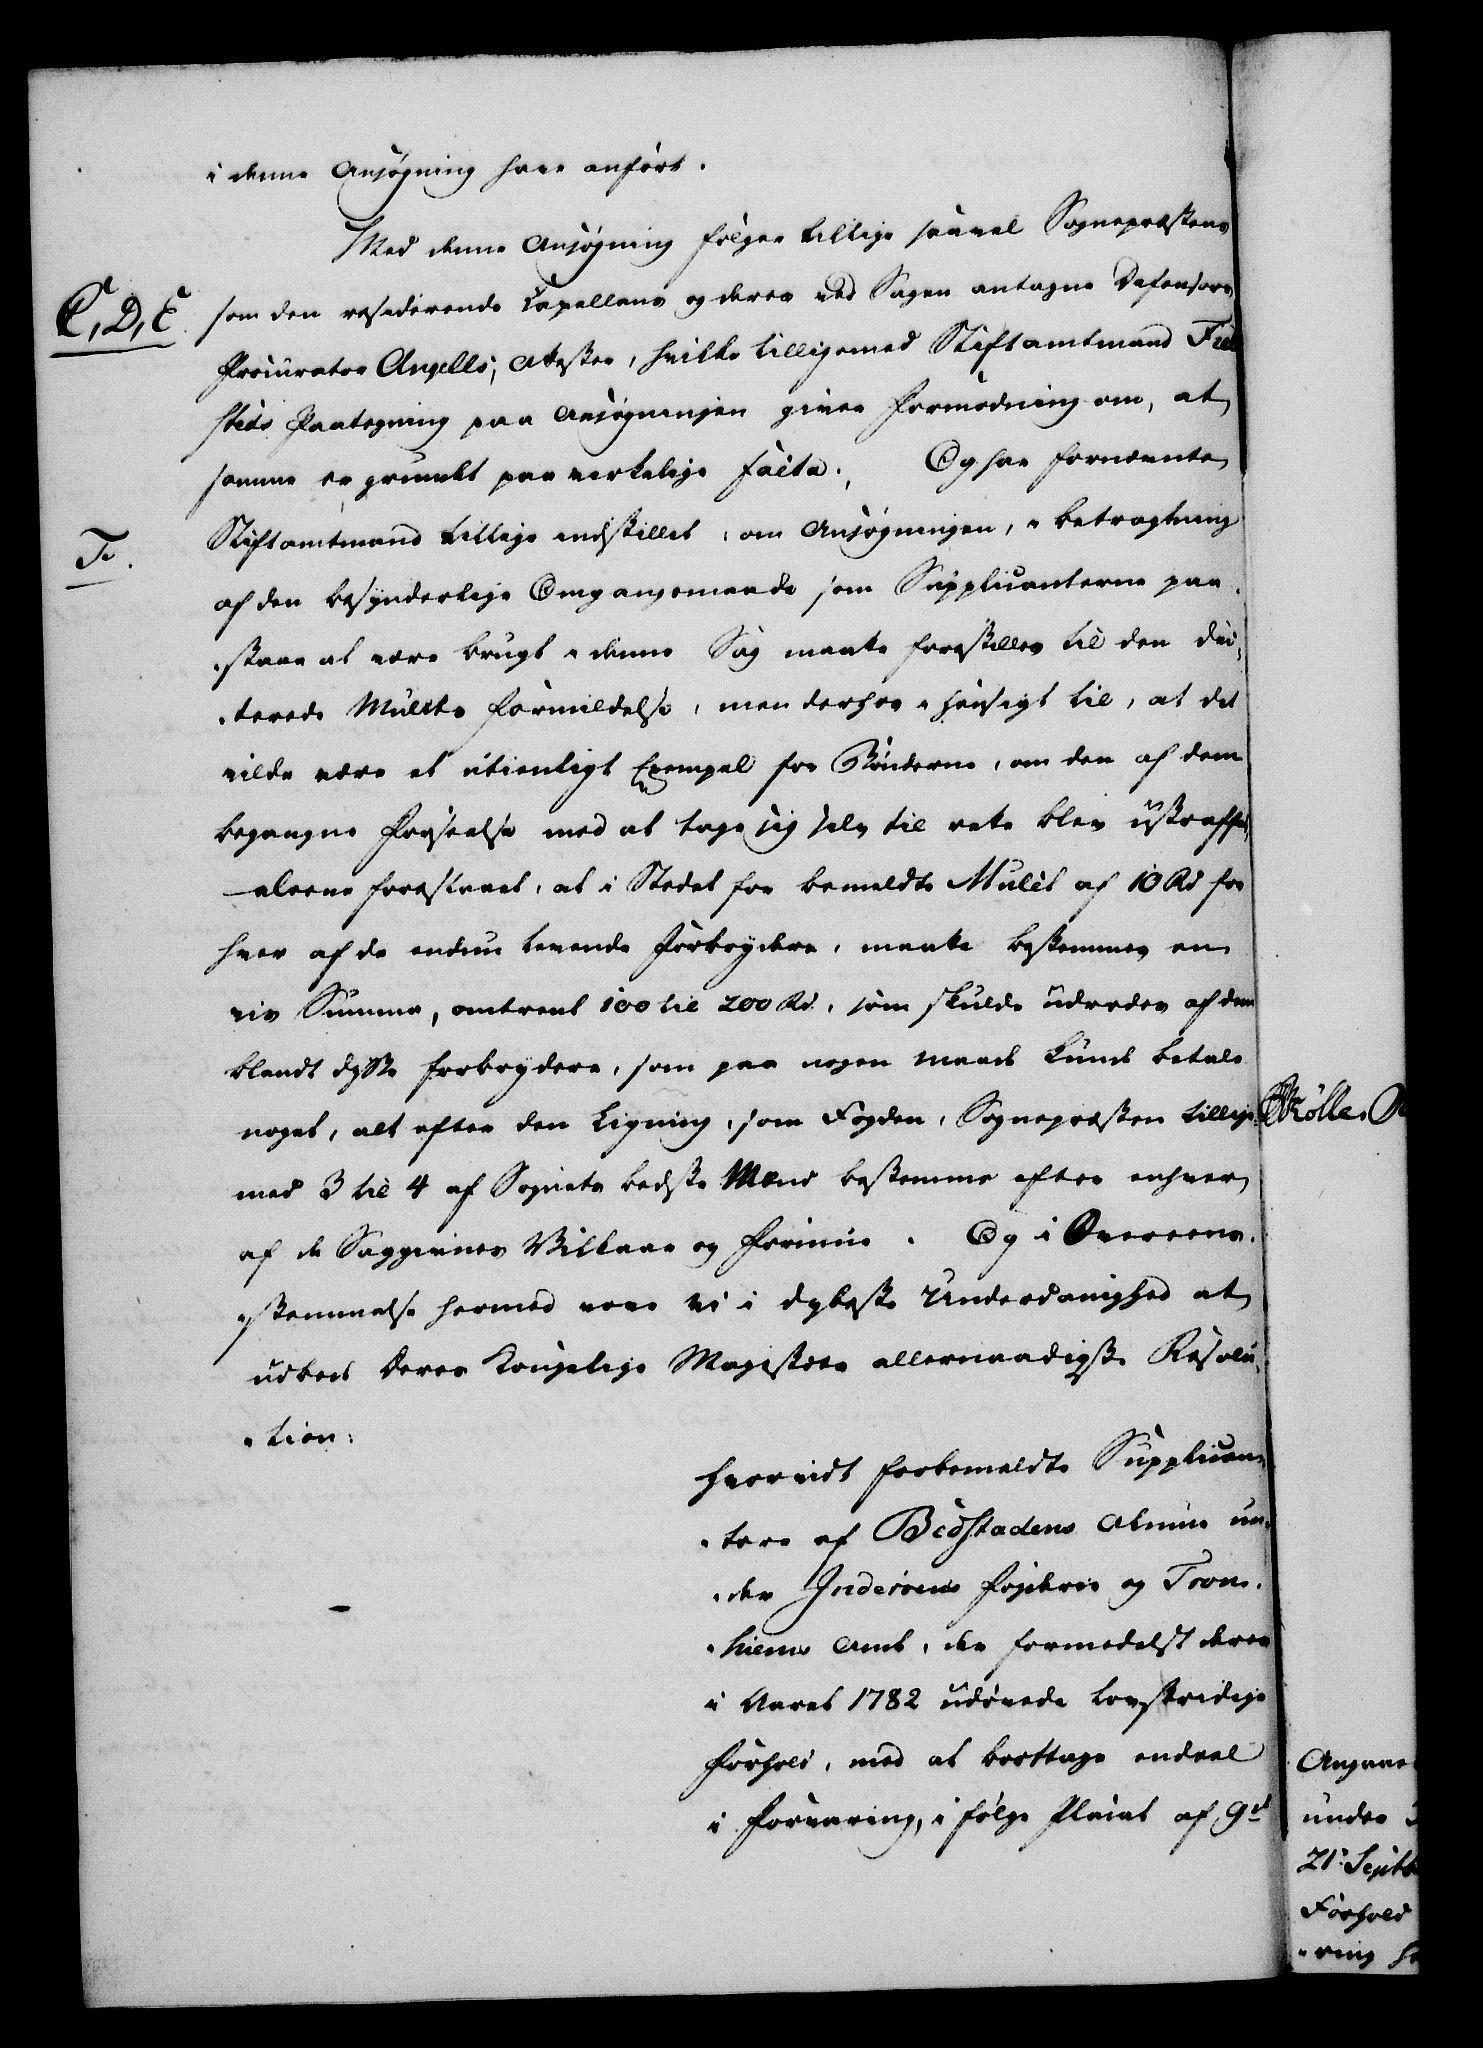 i denne Ansøgning have anført.
Med denne Ansøgning følger tillige saavel Sognepræstens
C, D, E.
som den residerende Capellans og deres ved Sagen antagne Defensors
Procurator Angells, Attester, hvilke tilligemed Stiftamtmand
Paategning paa Ansøgningen giver Formodning om, at
samme er grundet paa virkelige Facta. Og har fornævnte
F.
Stiftamtmand tillige indstillet, om Ansøgningen, i betragtning
af den besynderlige Omgangsmaade som Supplicanterne paa-
staae at være brugt i denne Sag maatte forestilles til den dic-
terede Mulcts Formildelse, men derhos i henseigt til, at det
vilde være et utienligt Exempel for Bønderne, om den af dem
begangne Forseelse med at tage sig selv til rette blev ustraffet,
allene foreslaaet, at i Stedet for bemeldte Mulct af 10 Rd for
hver af de endnu levende Forbrydere, maatte bestemmes en
vis Summa, omtrent 100 til 200 Rd. som skulde udredes af dem
blandt disse Forbrydere, som paa nogen maade kunde betale
noget, alt efter den Ligning, som Fogden, Sognepræsten tillige-
med 3 til 4 af Sognets bedste Mænd bestemme efter enhver
af de Saggivnes Vilkaar og Formue. Og i Overeens-
stemmelse hermed vove vi i dybeste Underdanighed at
udbede Deres Kongelige Majestets allernaadigste Resolu-
tion:
Hvorvidt forbemeldte Supplican-
tere af Bedstadens Almue un-
der Inderøens Fogderie og Tron-
hiems Amt, der formedelst deres
i Aaret 1782 udøvede lovstridige
Forhold, med at borttage endeel
i Forvaring, i følge Placat af 9d
Angaae
under
21. Septbr
Forhold
ring